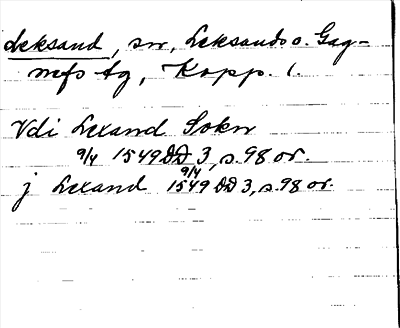 Leksand, sn, Leksands o. Gag-
nefs tg, Kopp. l.
Vdi Lexand Sokn
9/4 1549 DD 3, s. 98 or.
j Lexand 9/4 1549 DD 3, s. 98 or.